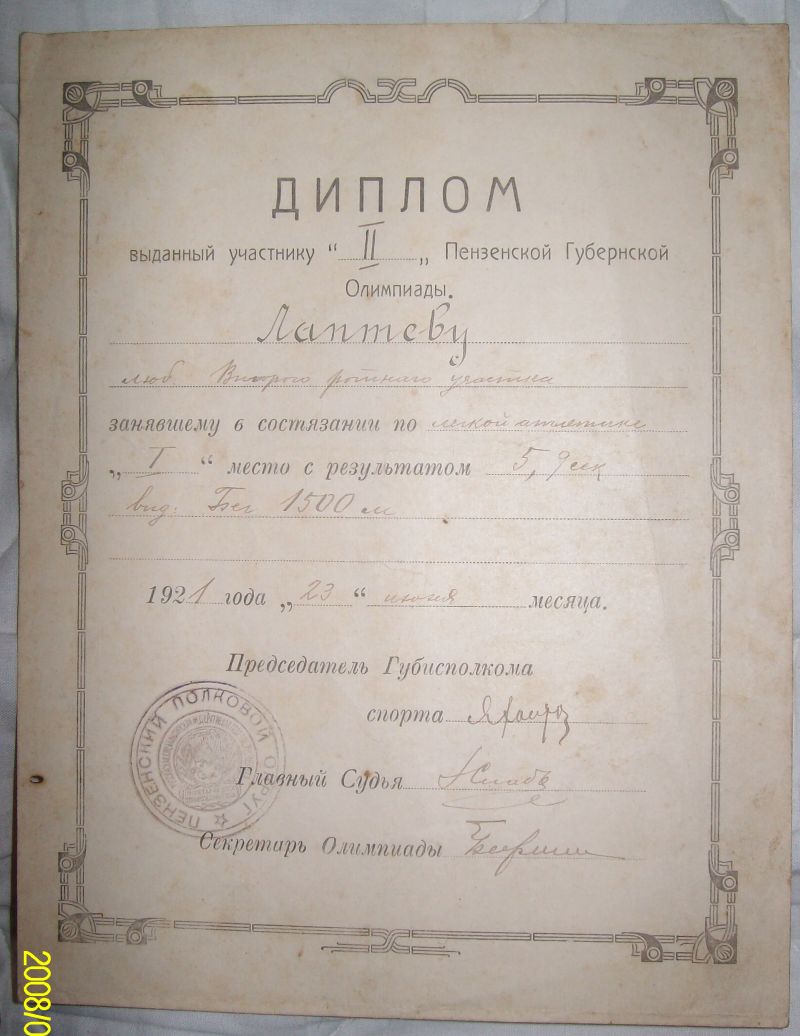 ДИПЛОМ
выданный участнику “ II „ Пензенской Губернской
Олимпиады.
Лаптеву
люб. Второго ротнаго участка
занявшему в состязании по легкой атлетике
„ I “ место с результатом 5,9 сек
вид: Бег 1500 м
1921 года „23“ июня месяца.
Председатель Губисполкома
спорта
Главный Судья
Секретарь Олимпиады
ПЕНЗЕНСКИЙ ПОЛКОВОЙ ОКРУГ
2008/0